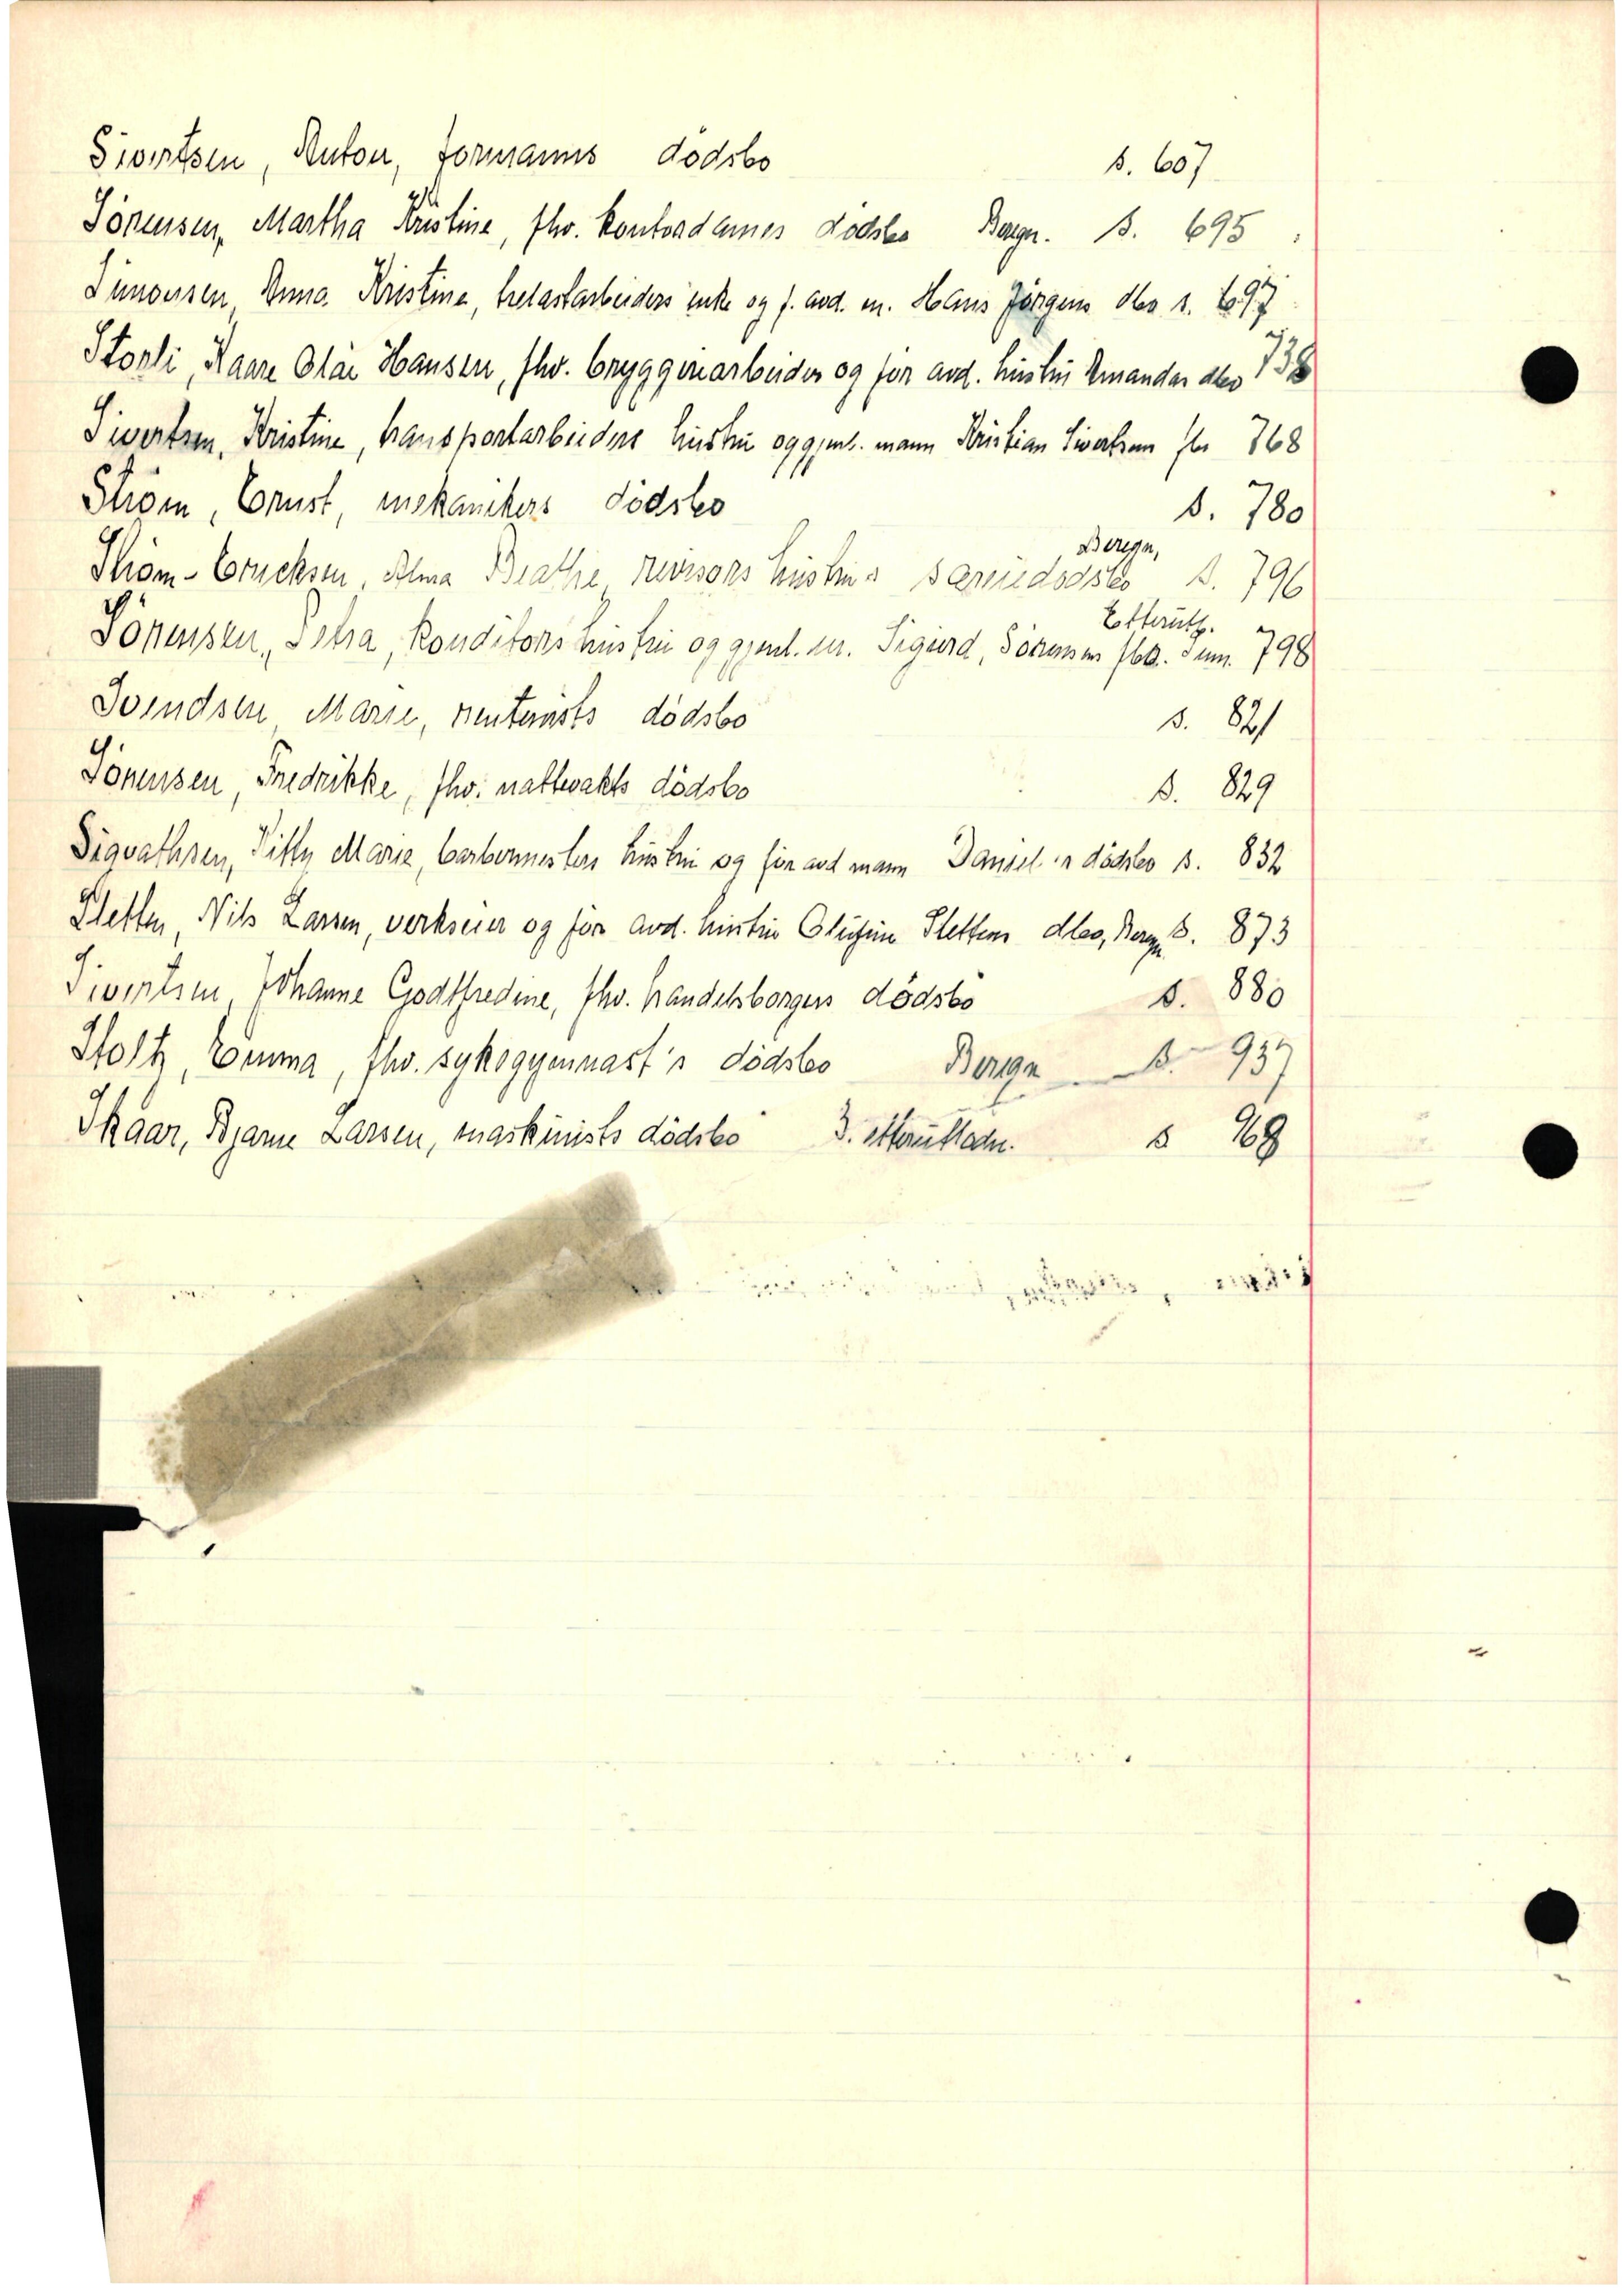 Sivertsen, Anton, formanns dödsbo s. 607
Sörensen, Martha Kristine, fhv. kontordames dödsbo Bergn. s. 695
Simonsen, Anna Kristine, trelastarbeiders enke og f. avd. m. Hans Jörgens dbo s. 697
Storli, Kaare Olai Hansen, fhv. bryggeriarbeider og för avd. hustru Amandas dbo 738
Sivertsen, Kristine, transportarbeiders hustru og gjenl. mann Kristian Sivertsen fbo 768
Ström, Ernst, mekanikers dödsbo s. 780
Ström-Ericksen, Alma Beathe, revisors hustrus særeiedödsbo Beregn, s. 796
Sörensen, Petra, konditors hustru og gjenl. m. Sigurd, Sörensen fbo. Etterutl. 798
Svendsen, Marie, rentenists dödsbo s. 821
Sörensen, Fredrikke, fhv. nattevakts dödsbo s. 829
Sigvathsen, Kitty Marie, barbermesters hustru og för avd mann Daniel's dödsbo s. 832
Sletten, Nils Larsen, verkseier og för avd. hustru Olufine Slettens dbo, Bergn s. 873
Sivertsen, Johanne Godtfredine, fhv. handelsborgers dödsbo s. 880
Stoltz, Emma, fhv. sykegymnast's dödsbo Beregn s. 937
Skaar, Bjarne Larsen, maskinists dödsbo 3. etterutlodn. s 969